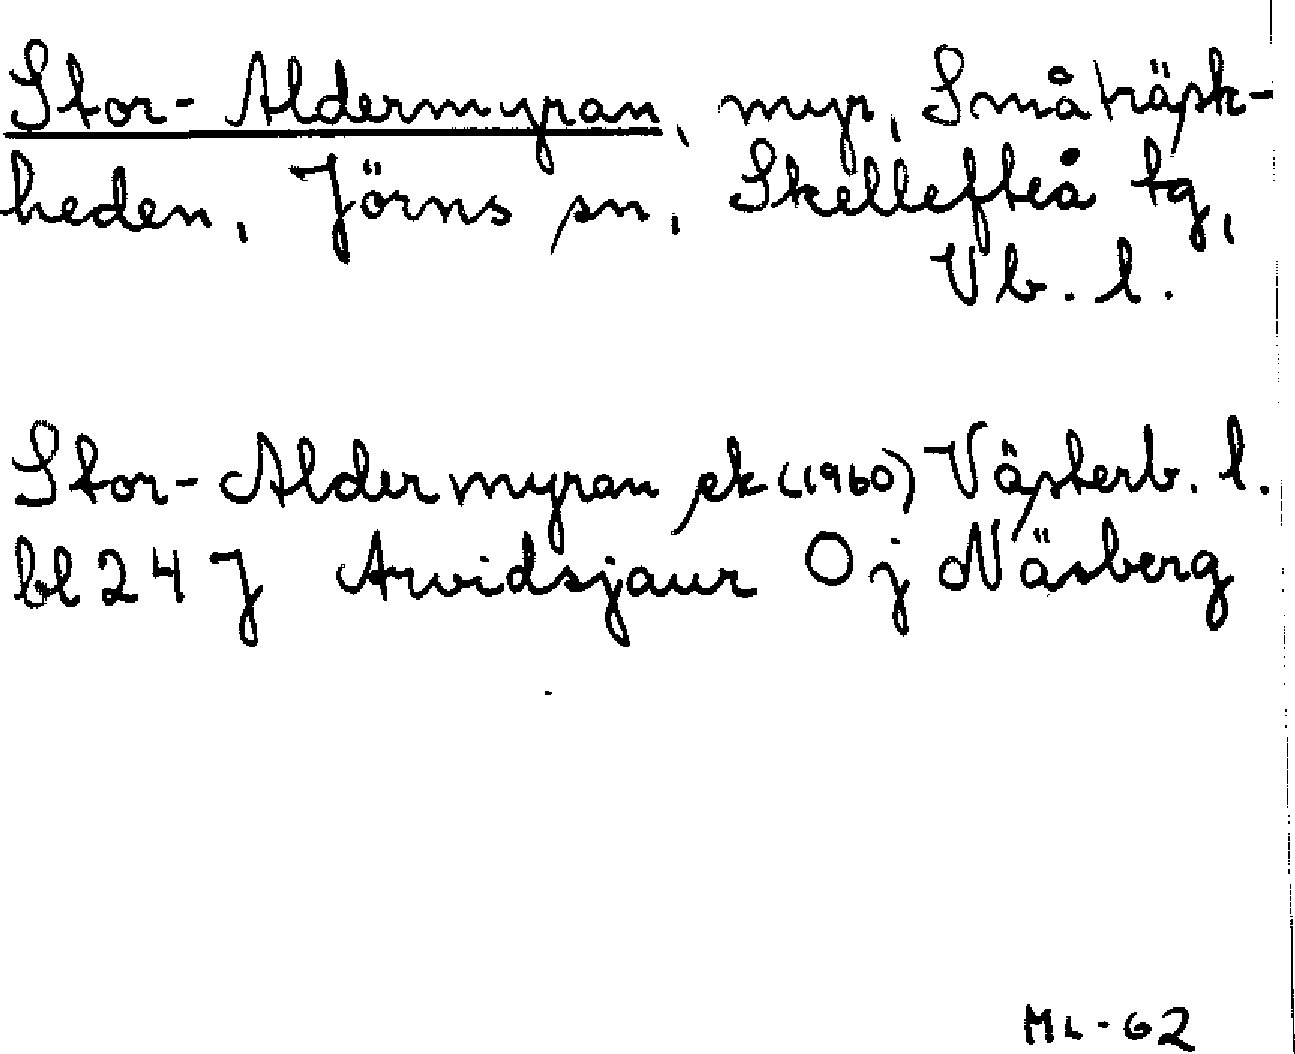 Stor-Aldermyran, myr, Småträsk-
heden, Jörns sn, Skellefteå tg,
Vb. l.
Stor-Aldermyran ek (1960) Västerb. l.
bl 24 J Arvidsjaur 0 j Näsberg
ML-62